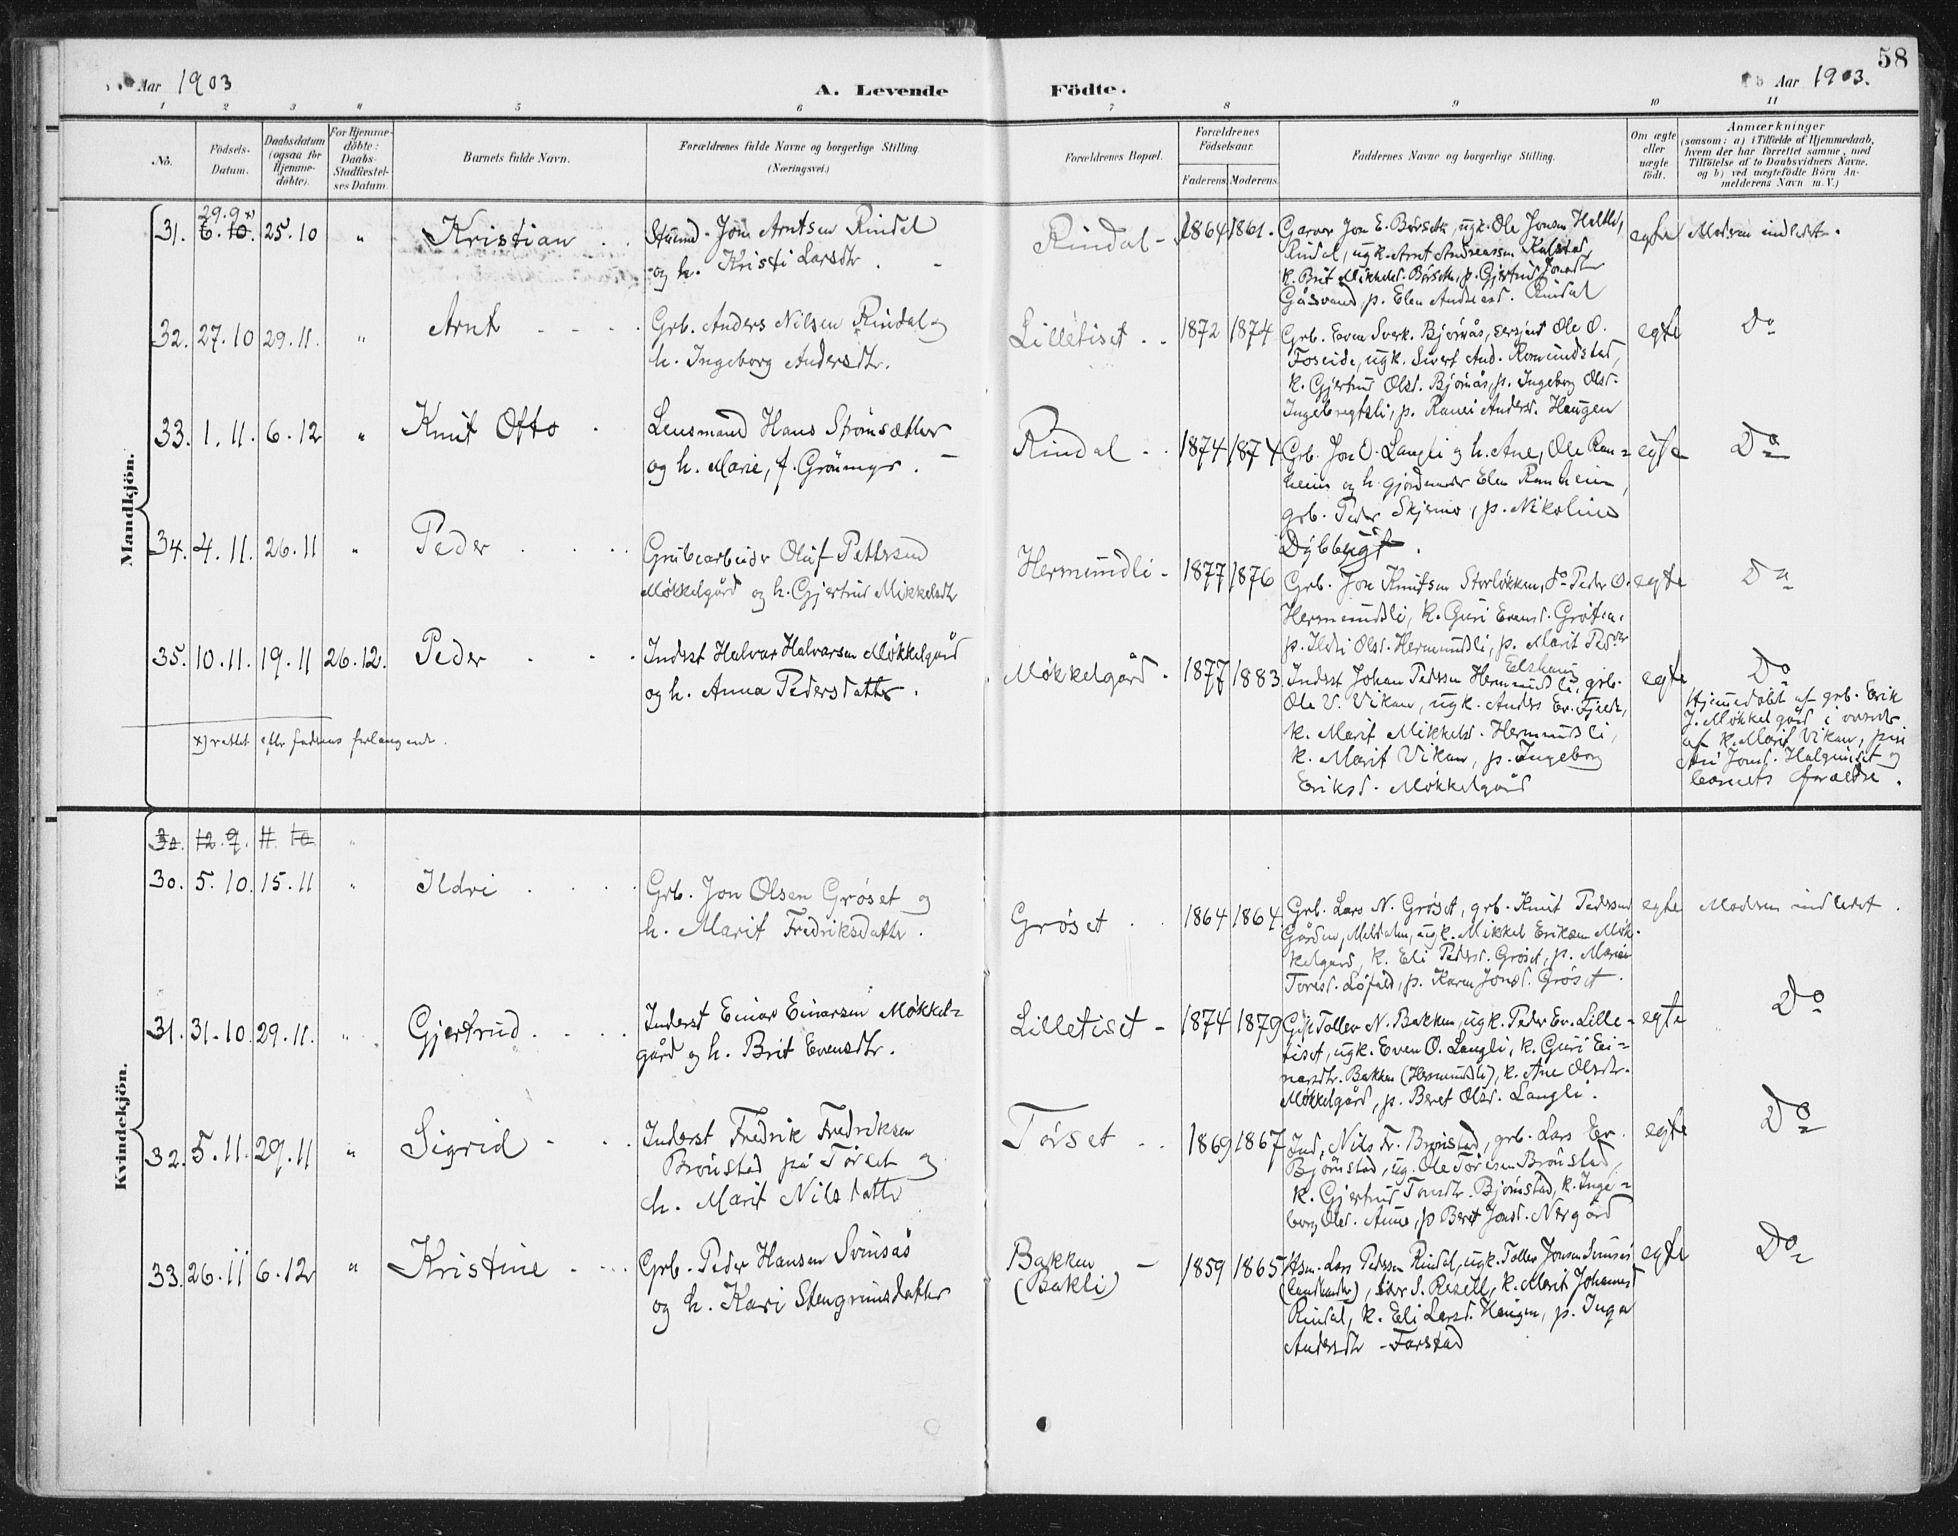 58
Aar 1903
A. Levende
Födte.
Aar 1903.
1 2 3 4 5 6 7 8 9 10 11
No.
Födsels-
Datum.
Daabsdatum
(ogsaa for
Hjemme-
døbte).
For Hjemme-
döbte:
Daabs-
Stadfæstel-
ses Datum.
Barnets fulde Navn.
Forældrenes fulde Navne og borgerlige Stilling.
(Næringsvei.)
Forældrenes Bopæl.
Forældrenes
Födselsaar.
Faderens Moderens
Faddernes Navne og borgerlige Stilling.
Om ægte
eller
uægte
födt.
Anmærkninger
(saasom: a) i Tilfælde af Hjemmedaab,
hvem der har forrettet samme, med
Tilföielse af to Daabsvidners Navne.
og b) ved uægtefödte Börn An-
melderens Navn m. V.)
Mandkjön.
29.9 x)
31. 6.10. 25.10 " Kristian
Jon Arntsen Rindal
og h. Kristi Larsdtr.
Rindal
1864 1861.
Garver Jon E. Børseth, ugk. Ole Jonsen
Rindal, ugk. Arnt Andreassen
k. Brit Mikkelsd. Børseth, p. Gjertrud Jonsdtr
Gåsvand, p. Elen Andersd. Rindal
egte
Moderen indledet.
32. 27.10 29.11. " Arnt
Grb. Anders Nilsen Rindal og
h. Ingeborg Andersdtr.
Lilletiset
1872 1874
Grb. Even Sverk. Bjørnås, Ole O.
Foseide, ugk. Sivert And. Romundstad,
k. Gjertrud Olsd. Bjørnås, p. Ingeborg Olsd.
Ingebregtsli, p. Ranei Andersd. Haugen
egte
Do
33. 1.11. 6.12 " Knut Otto
Lensmand Hans Strømsæther
og h. Marie, f. Grönmyr.
Rindal
1874 1874
Grb. Jon O. Langli og h. Ane, Ole Ran=
heim og h. gjordemoder Elen Ranheim,
grb. Peder Skjermo, p. Nikoline
egte
Do
34. 4.11. 26.11 " Peder
Grubearbeider Oluf Pettersen
Møkkelgård og h. Gjertrud Mikkelsdtr
Hermundli
1877 1876
Grb. Jon Knutsen Storløkken, do Peder O.
Hermundsli, k. Guri Evensd. Grötan,
p. Ildri Olsd. Hermundsli, p. Marit Pedsdtr
egte
Do
35. 10.11. 19.11 26.12. Peder
Inderst Halvar Halvarsen Møkkelgård
og h. Anna Pedersdatter.
Møkkelgård.
1877 1883
Inderst Johan Pedersen Hermundsli, grb.
Ole V. Vikan, ugk. Anders Er. Fjelde,
k. Marit Mikkelsd. Hermundsli,
k. Marit Vikan, p. Ingeborg
Eriksd. Møkkelgård
egte
Do
Hjemmedøbt af grb. Erik
J. Møkkelgård i overvær
af k. Marit Vikan, pige
Ari Jonsd. Halgunset og
barnets forældre.
x) rettet efter faderens forlangende.
Kvindekjön.
30. 12.9. 11.10 "
30. 5.10. 15.11 " Ildri
Grb. Jon Olsen Grøset og
h. Marit Fredriksdatter.
Grøset
1864 1864
Grb. Lars N. Grøset, grb. Knut Pedersen
Gården, Meldalen, ugk. Mikkel Eriksen Møk-
kelgård, k. Eli Pedersd. Grøset, p.
Toresd. Løfald, p. Karen Jonsd. Grøset.
egte
Moderen indledet.
31. 31.10. 29.11. " Gjertrud.
Inderst Einar Einarsen Møkkel=
gård og h. Brit Evensdtr.
Lilletiset
1874 1879
Toller N. Bakken, ugk. Peder Ev. Lille=
tiset, ugk. Even O. Langli, k. Guri Ei=
narsdtr. Bakken (Hermundsli), k. Ane Olsdtr.
Møkkelgård, p. Beret Olsd. Langli.
egte
Do
32. 5.11. 29.11 " Sigrid
Inderst Fredrik Fredriksen
Brønstad på Tørset og
h. Marit Nilsdatter
Tørset
1869 1867
Ind. Nils Fr. Brønstad, grb. Lars Ev.
Bjørnstad, ug. Ole Toresen Brønstad,
k. Gjertrud Tondtr. Bjørnstad, k. Inge=
borg Olsd. Aune, p Beret Jonsd. Nergård
egte
Do
33. 26.11 6.12 " Kristine
Grb. Peder Hansen Svinsås
og h. Kari Stengrimsdatter
Bakken
(Bakli)
1859 1865
Hsm. Lars Pedersen Rindal, ugk. Toller Jonsen Svinsås
(landhandler), Siver S. Reselt, k. Marit Johannesd
Rindal, k. Eli Larsd. Haugen, p. Inga
Andersdtr Farstad
egte
Do